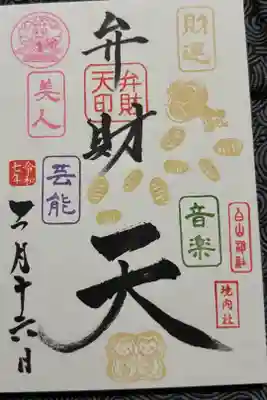 財運
音楽
白山神社
境内社
弁財天
弁財
天印
美人
芸能
令和
七年
二月十六日